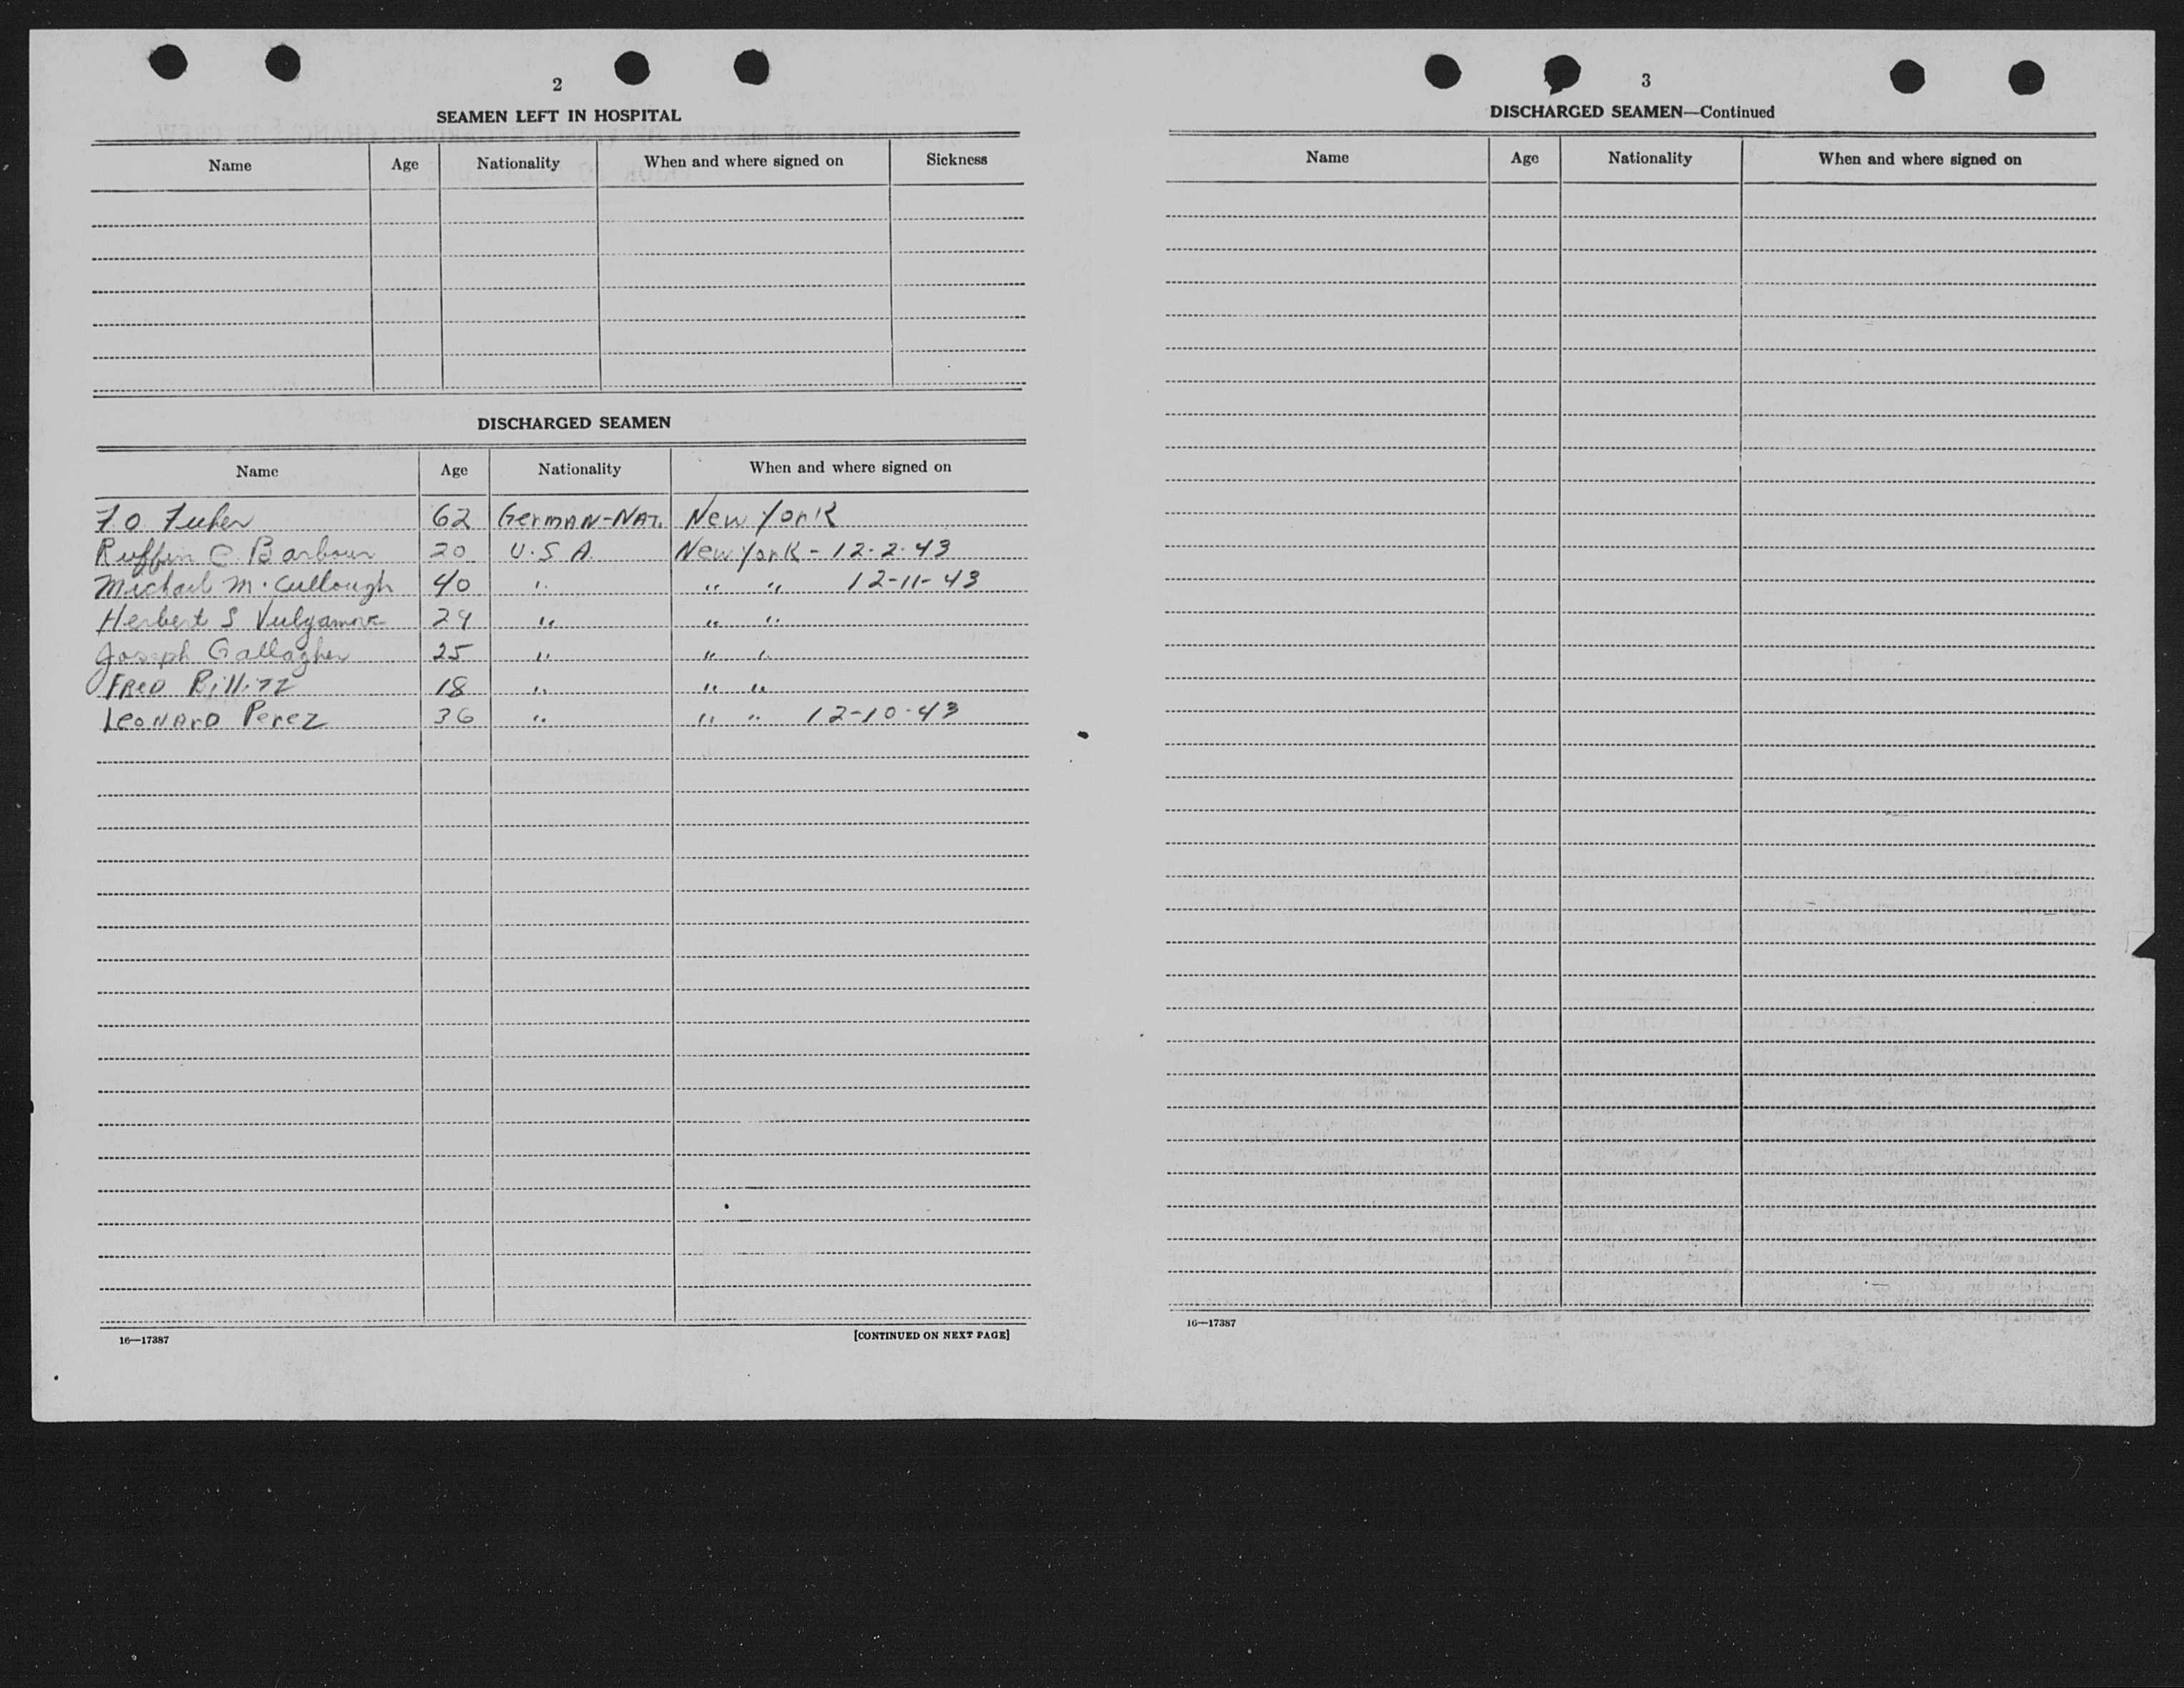 2
SEAMEN LEFT IN HOSPITAL
Name Age Nationality When and where signed on Sickness
DISCHARGED SEAMEN
Name Age Nationality When and where signed on
F.O. 62 German-Nat. New York
Ruffin C Barbour 20 U.S.A. New York - 12-2-43
Michael McCullough 40 " " " 12-11-43
Herbert S 29 " " "
Joseph Gallagher 25 " " "
Fred 18 " " "
Leonard Perez 36 " " " 12-10-43
16—17387 [CONTINUED ON NEXT PAGE]
3
DISCHARGED SEAMEN—Continued
Name Age Nationality When and where signed on
16—17387